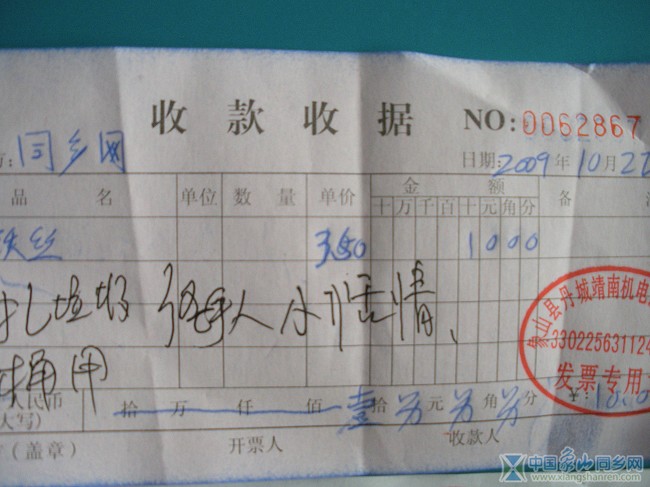 收款收据 NO:0062867
同乡网 日期:2009年10月2
品名 单位 数量 单价 金额 备
十万千百十元角分
铁丝 350 1000
扎垃圾 经手人 小活情、
桶用
人民币 拾万仟佰壹拾 元 角 分 ¥:1000
大写)
(盖章) 开票人 收款人
象山县丹城靖南机电
330225631124
发票专用
中国象山同乡网
www.xiangshanren.com